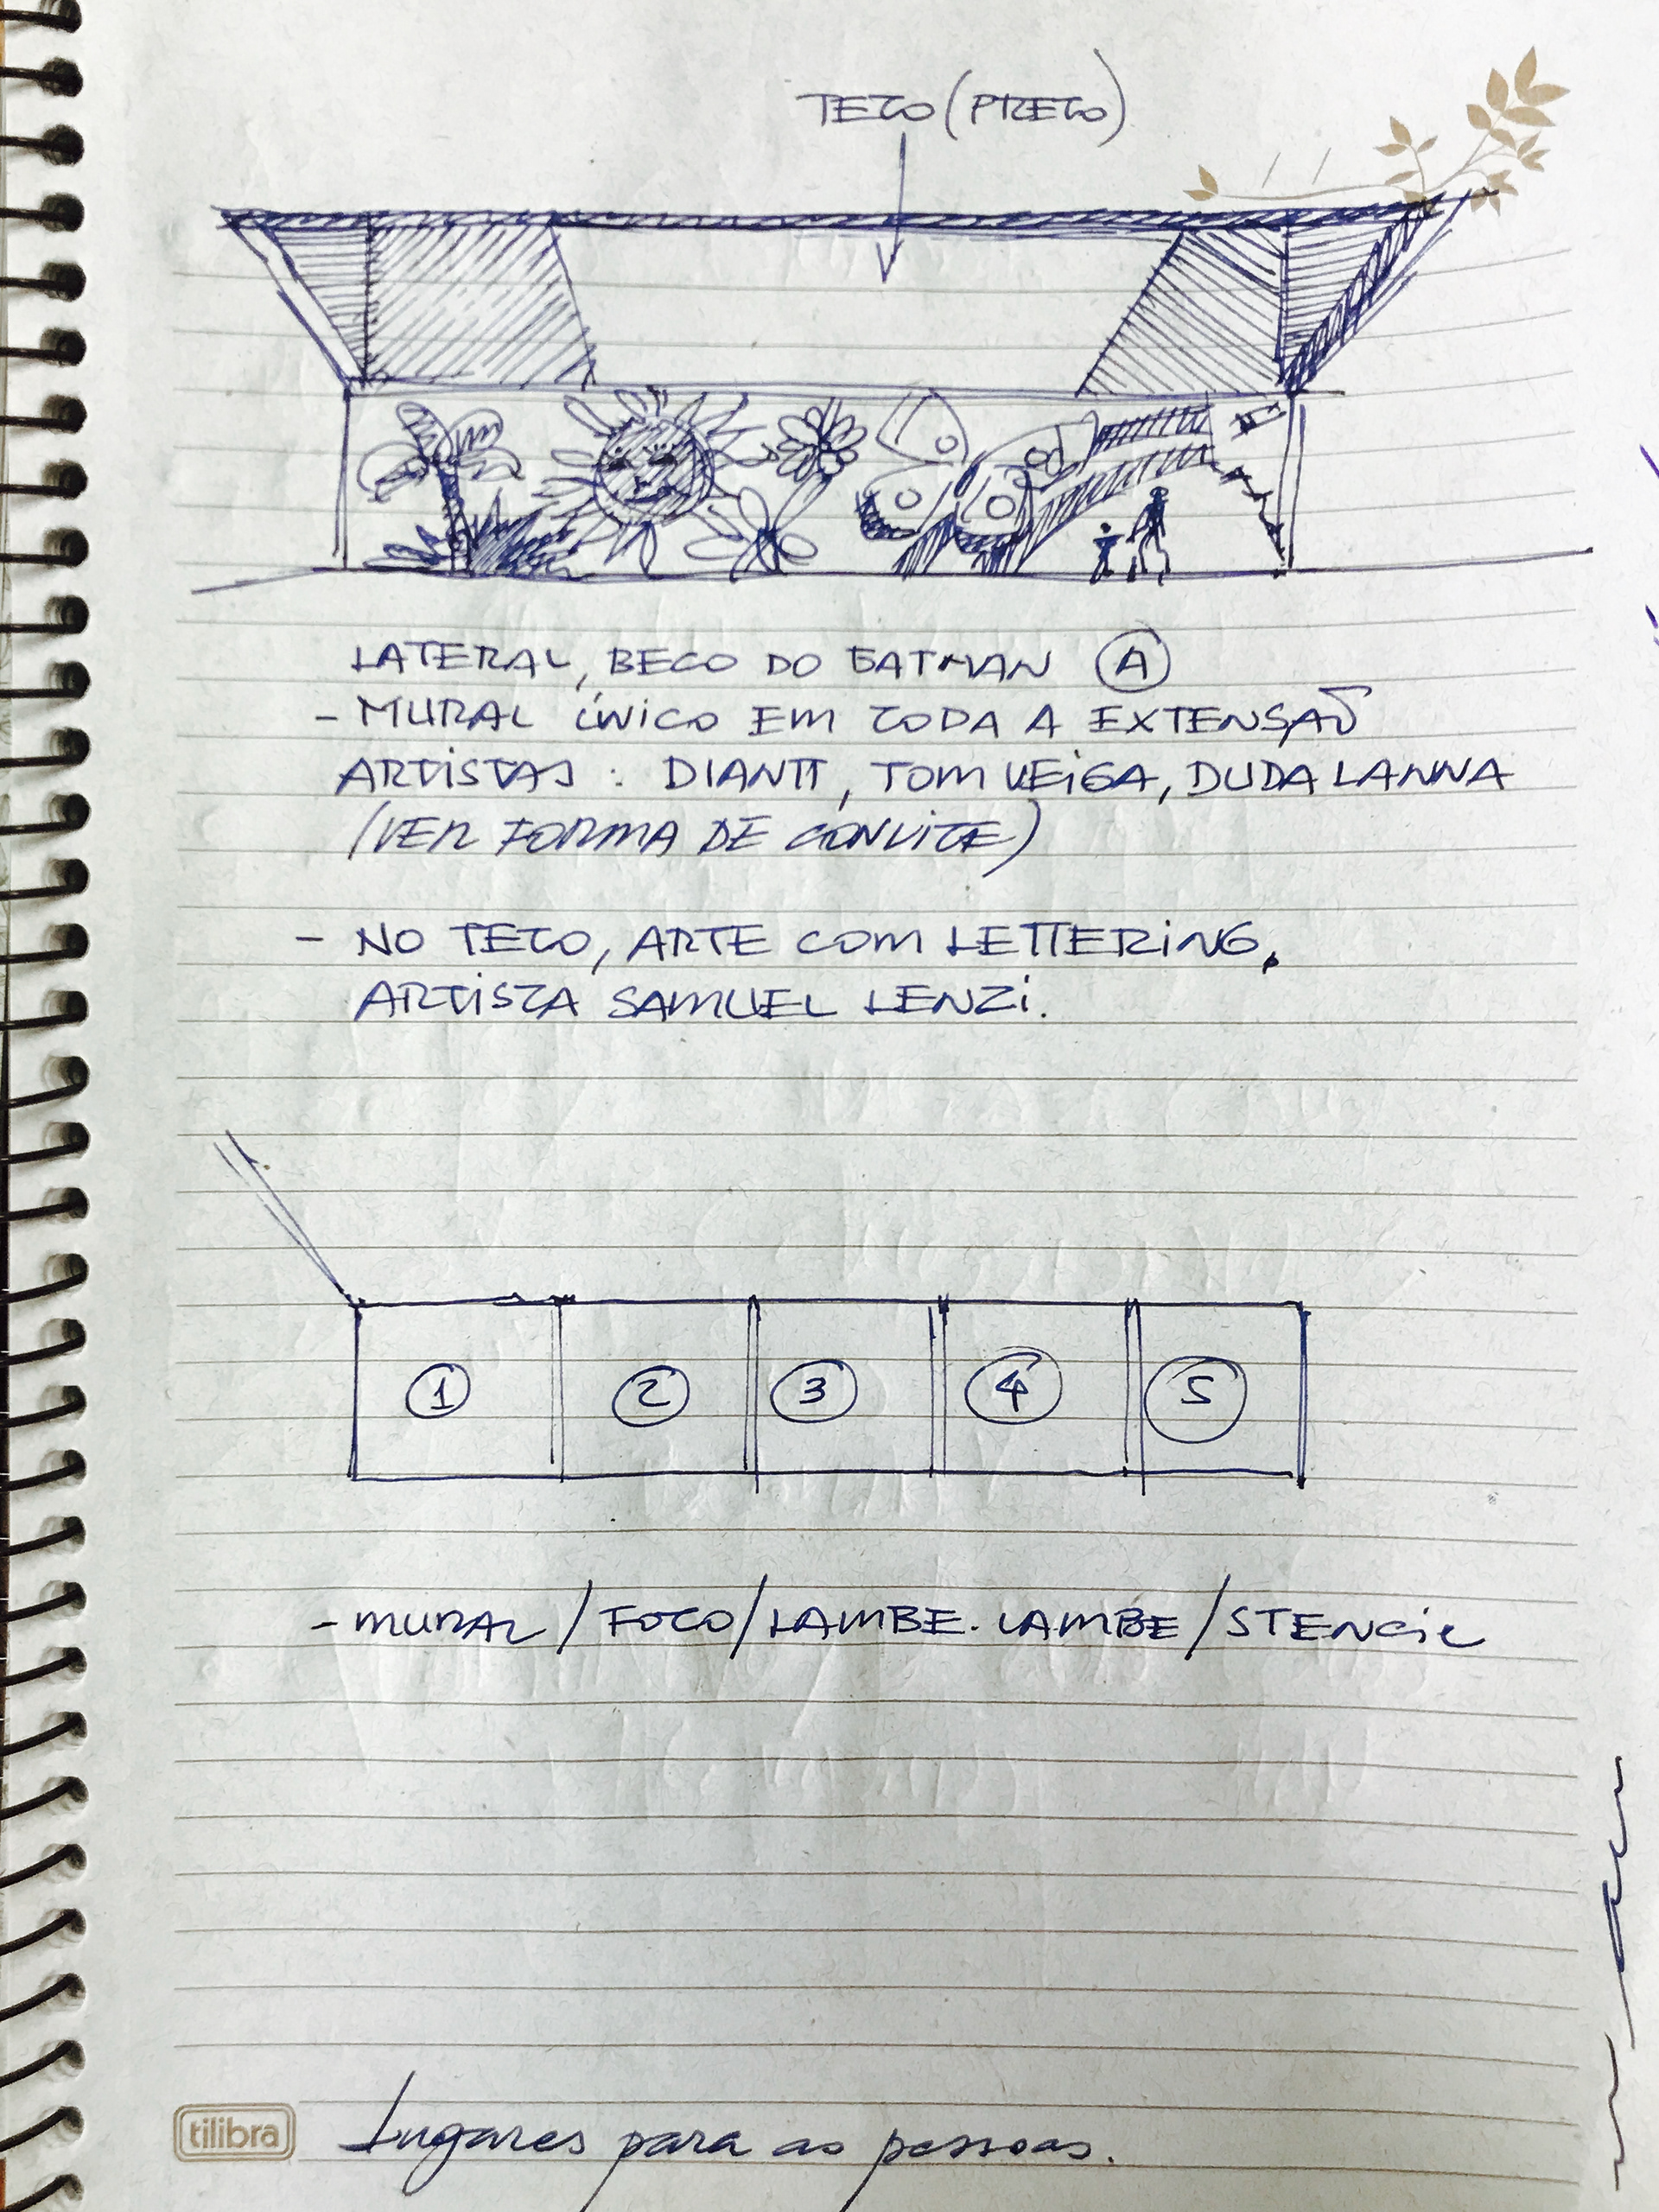 TETO (PRETO)
LATERAL, BECO DO BATMAN (A)
- MURAL ÚNICO EM TODA A EXTENSÃO
ARTISTAS : DIANTT, TOM VEIGA, DUDA LANNA
(VER FORMA DE CONVITE)
- NO TETO, ARTE COM LETTERING,
ARTISTA SAMUEL LENZI.
1 2 3 4 5
- MURAL / FOTO / LAMBE. LAMBE / STENCIL
tilibra
Lugares para as pessoas.